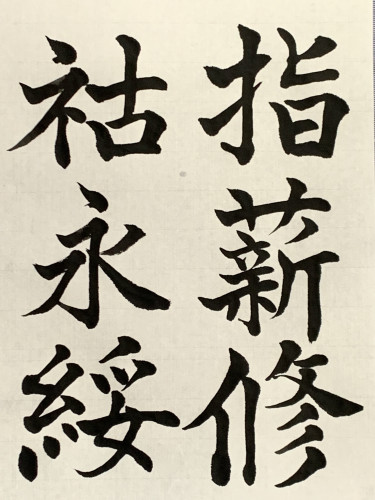 指薪修
祜永綏